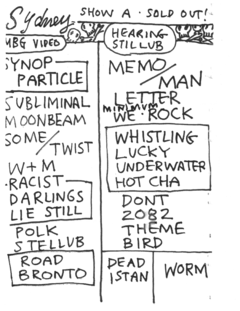 Sydney
SHOW A · SOLD OUT!
MBG VIDEO
SYNOP
PARTICLE
SUBLIMINAL
MOONBEAM
SOME/
TWIST
W+M
RACIST
DARLINGS
LIE STILL
POLK
STELLUB
ROAD
BRONTO
HEARING
STILLUB
MEMO/
MAN
LETTER
MINIMUM
WE · ROCK
WHISTLING
LUCKY
UNDERWATER
HOT CHA
DONT
2082
THEME
BIRD
DEAD
ISTAN
WORM